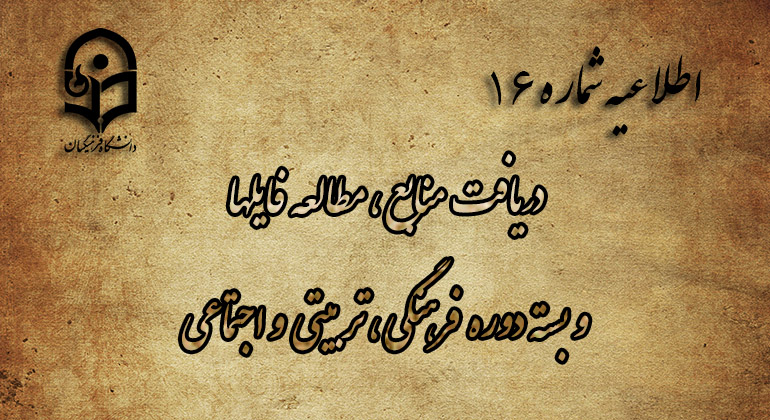 اطلاعیه شماره ۱۶
دانشگاه فرهنگیان
دریافت منابع، مطالعه فایلها
و بسته دوره فرهنگی، تربیتی و اجتماعی